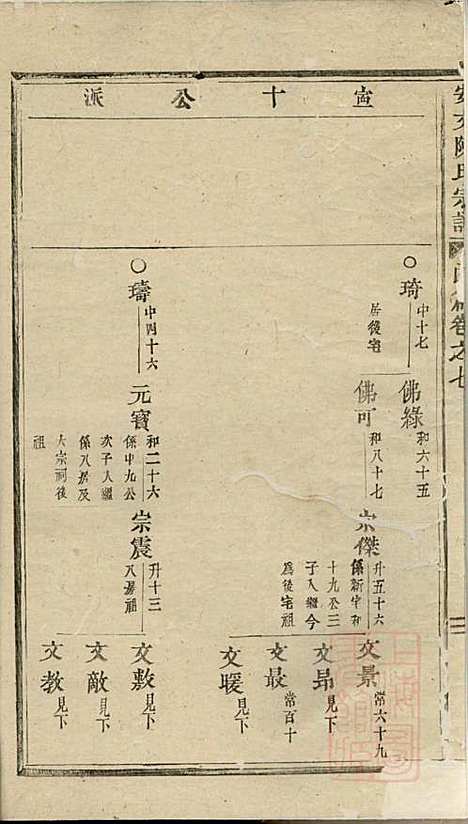 安文陳氏宗譜
卷之七
壼十公派
○琦 中十七
居後宅
佛綠 和六十五
佛可 和八十七
宗傑 升五十六
係新宅和
十九公三
子入繼今
爲後宅祖
文景 常六十九
文昂 見下
文最 常百十
文暖 見下
○璹 中四十六
元寳 和二十六
係中九公
次子入繼
係八房及
大宗祠後
祖
宗震 升十三
八房祖
文敷 見下
文敵 見下
文教 見下